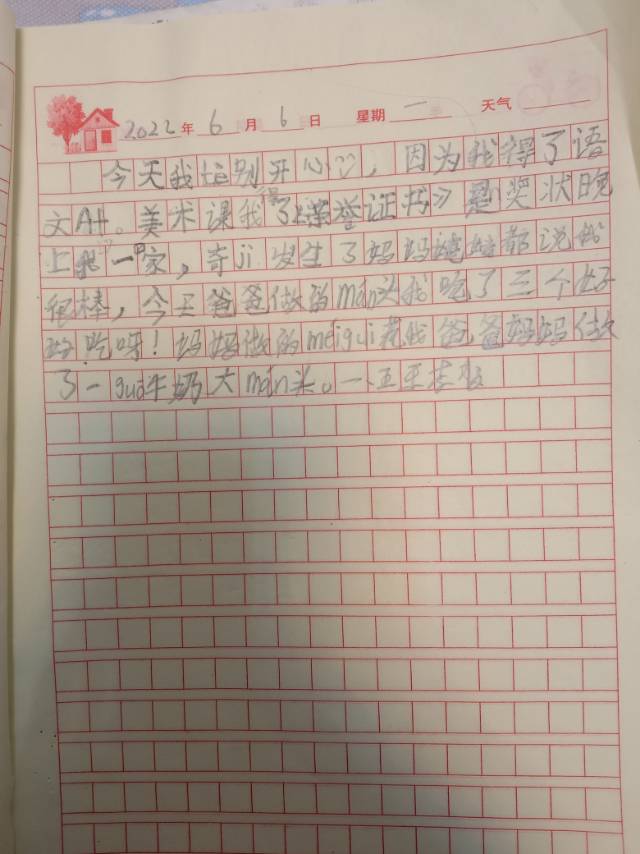 2022年6月6日 星期一 天气
今天我特别开心，因为我得了语
文A+。美术课我得了《荣誉证书》是奖状晚
上我一回家，奇ji发生了妈妈婚婚都说我
很棒，今天爸爸做的mán头我吃了三个好
好吃呀！妈妈做的méigui花我爸爸妈妈做
了一guō牛奶大mán头。一